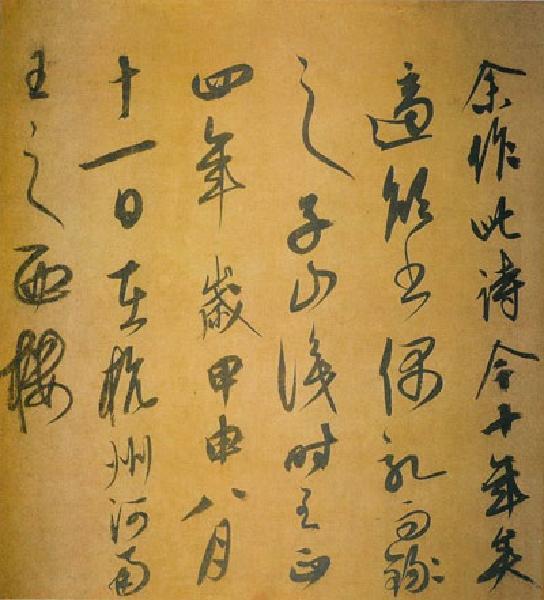 余作此詩今十年矣
適欲書偶記而錄
之子山識時至正
四年歲甲申八月
十一日在杭州河南
王之西樓